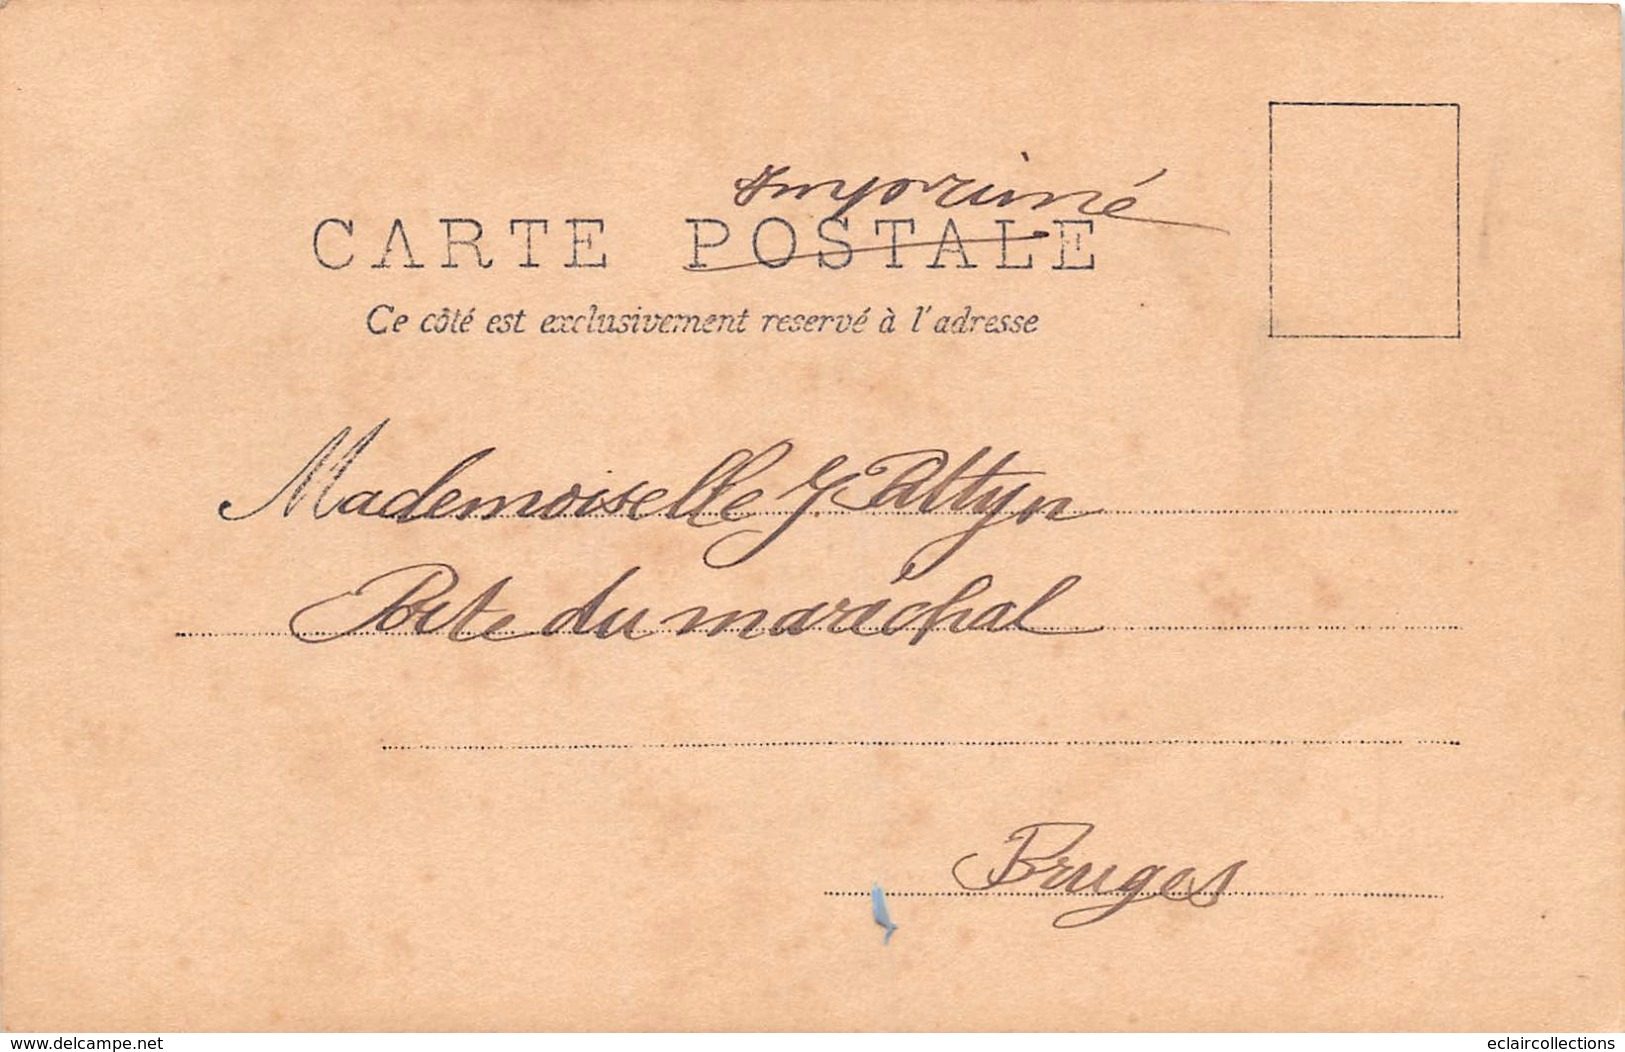 Imprimé
CARTE POSTALE
Ce côté est exclusivement reservé à l'adresse
Mademoiselle J Pattyn
Porte du maréchal
Bruges
www.delcampe.net
eclaircollections